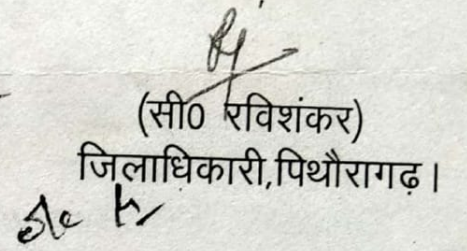 (सी0 रविशंकर)
जिलाधिकारी,पिथौरागढ़।